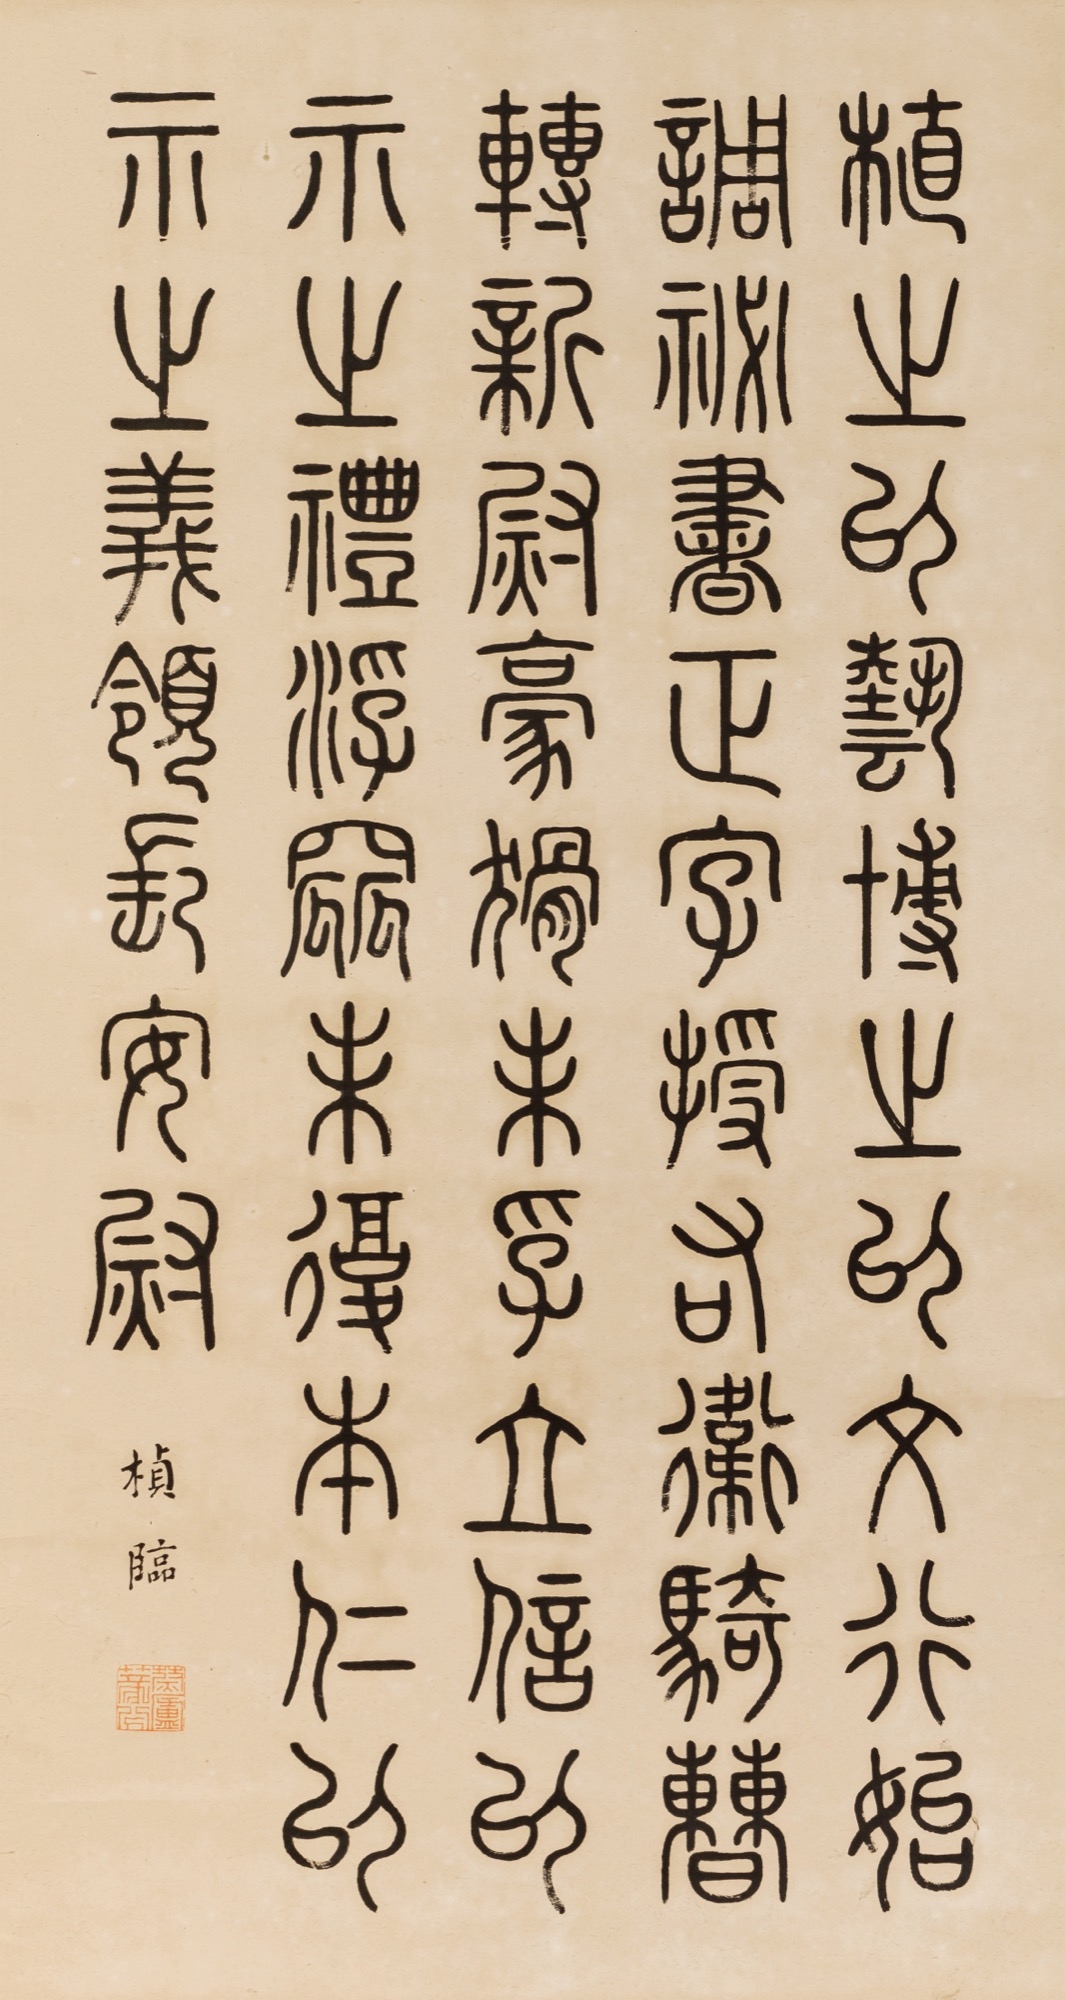 植之以藝博之以文行始
調祕書正字授右衛騎曹
轉新尉豪猾未孚立信以
示之禮浮窳未復本仁以
示之義領長安尉
楨臨